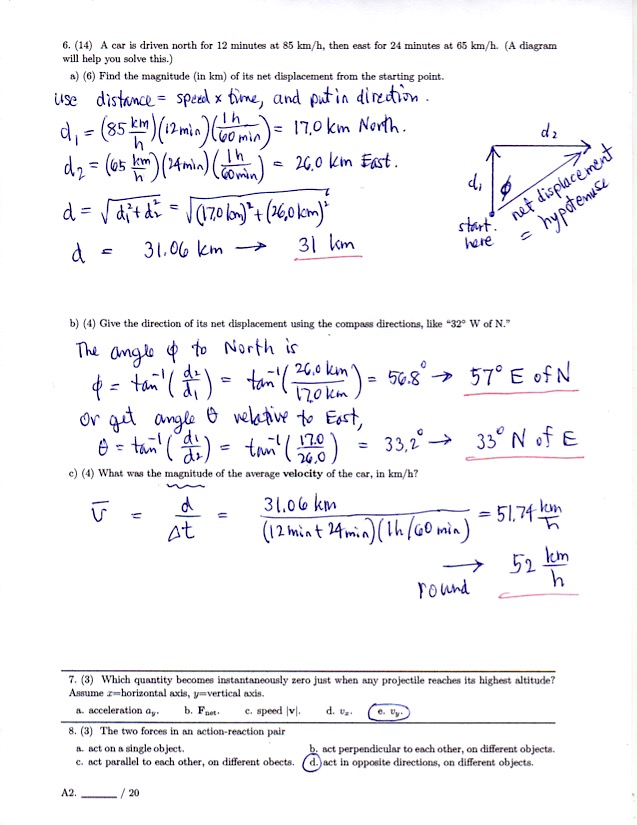 6. (14) A car is driven north for 12 minutes at 85 km/h, then east for 24 minutes at 65 km/h. (A diagram
will help you solve this.)
a) (6) Find the magnitude (in km) of its net displacement from the starting point.
use distance = speed x time, and put in direction.
d₁ = (85 km/h)(12min)(1h/60min) = 17.0 km North.
d₂ = (65 km/h)(24min)(1h/60min) = 26.0 km East.
d = √(d₁² + d₂²) = √((17.0 km)² + (26.0 km)²)
d = 31.06 km → 31 km
d₂
d₁
φ
start
here
net displacement
= hypotenuse
b) (4) Give the direction of its net displacement using the compass directions, like "32° W of N."
The angle φ to North is
φ = tan⁻¹(d₂/d₁) = tan⁻¹(26.0 km/17.0 km) = 56.8° → 57° E of N
Or get angle θ relative to East,
θ = tan⁻¹(d₁/d₂) = tan⁻¹(17.0/26.0) = 33.2° → 33° N of E
c) (4) What was the magnitude of the average velocity of the car, in km/h?
v̄ = d/Δt = 31.06 km/(12min + 24min)(1h/60 min) = 51.74 km/h
→ 52 km/h
round
7. (3) Which quantity becomes instantaneously zero just when any projectile reaches its highest altitude?
Assume x=horizontal axis, y=vertical axis.
a. acceleration aᵧ. b. Fnet. c. speed |v|. d. vₓ. e. vᵧ.
8. (3) The two forces in an action-reaction pair
a. act on a single object. b. act perpendicular to each other, on different objects.
c. act parallel to each other, on different obects. d. act in opposite directions, on different objects.
A2. ______ / 20